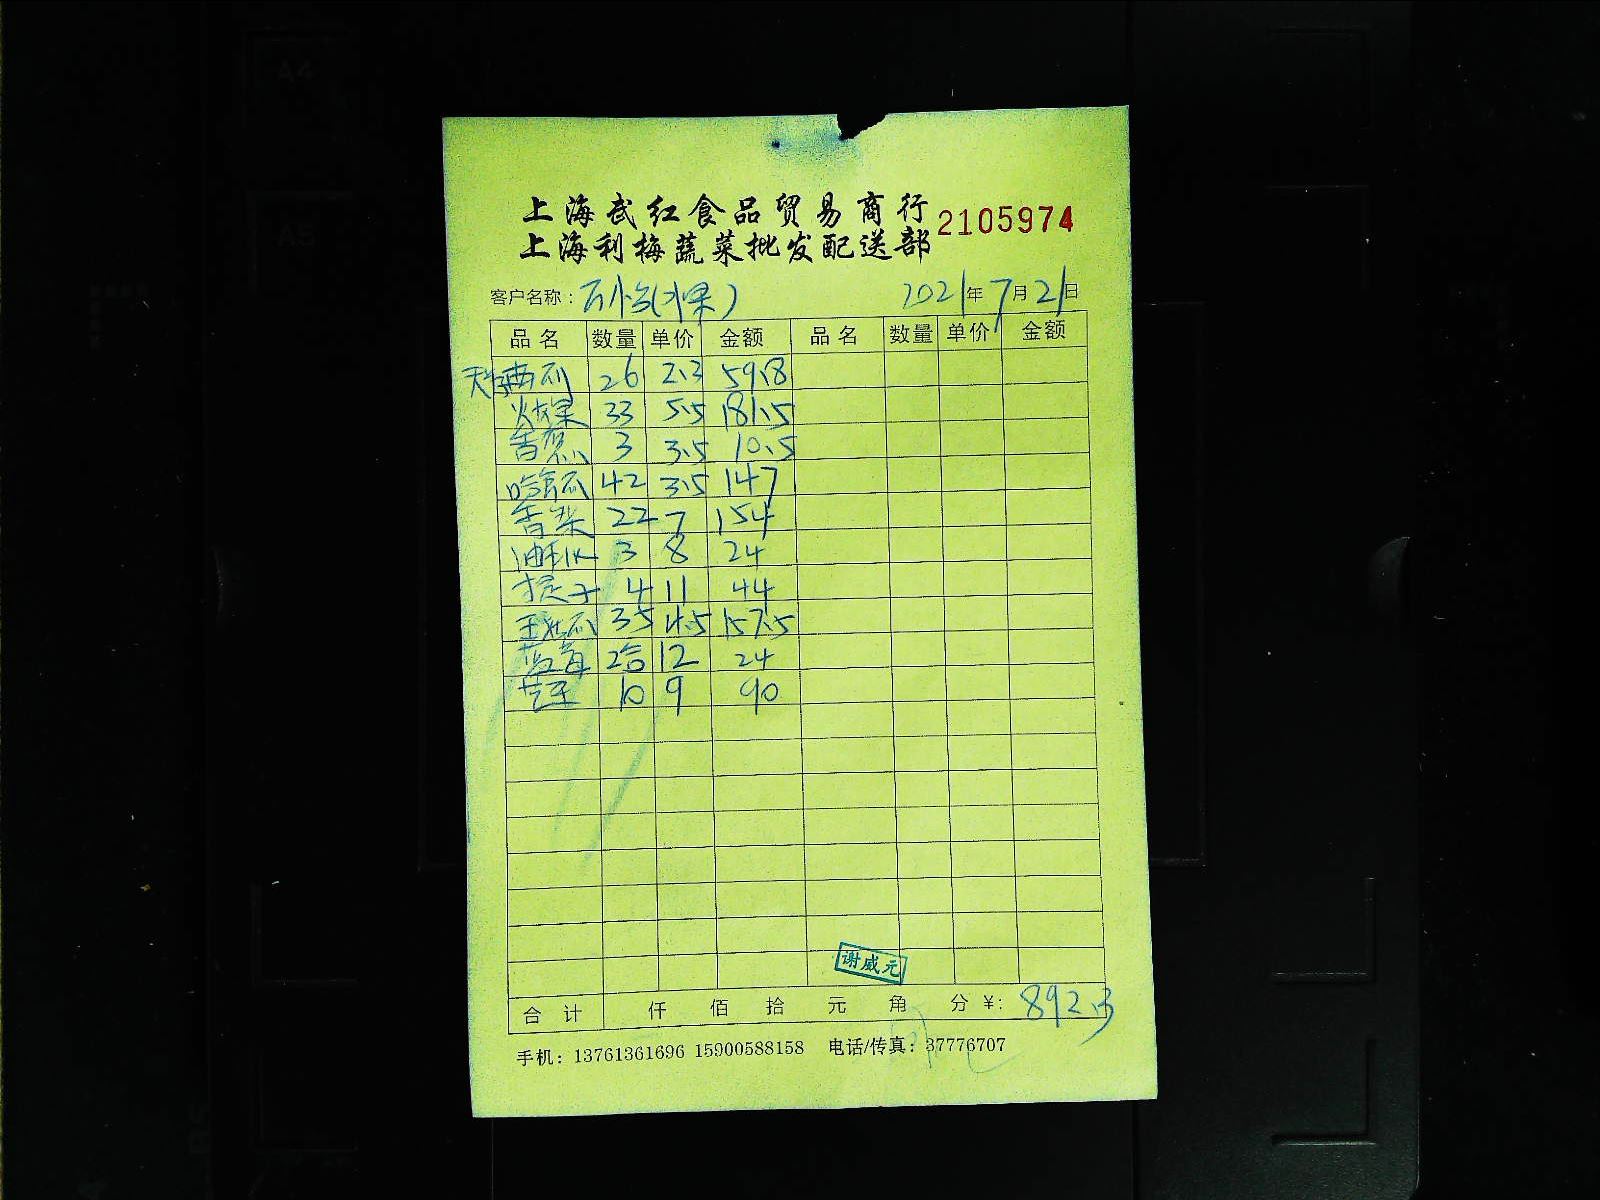 上海武红食品贸易商行
2105974
上海利梅蔬菜批发配送部
客户名称： (水果) 2021年7月21日
品名 数量 单价 金额 品名 数量 单价 金额
西瓜 26 2.3 59.8
火龙果 33 5.5 181.5
香蕉 3 3.5 10.5
哈密瓜 42 3.5 147
香梨 22 7 154
油桃 3 8 24
提子 4 11 44
玉菇瓜 35 4.5 157.5
蓝莓 2合 12 24
芒果 10 9 90
谢威元
合计 仟 佰 拾 元 角 分 ¥: 892.3
手机：13761361696 15900588158 电话/传真：37776707